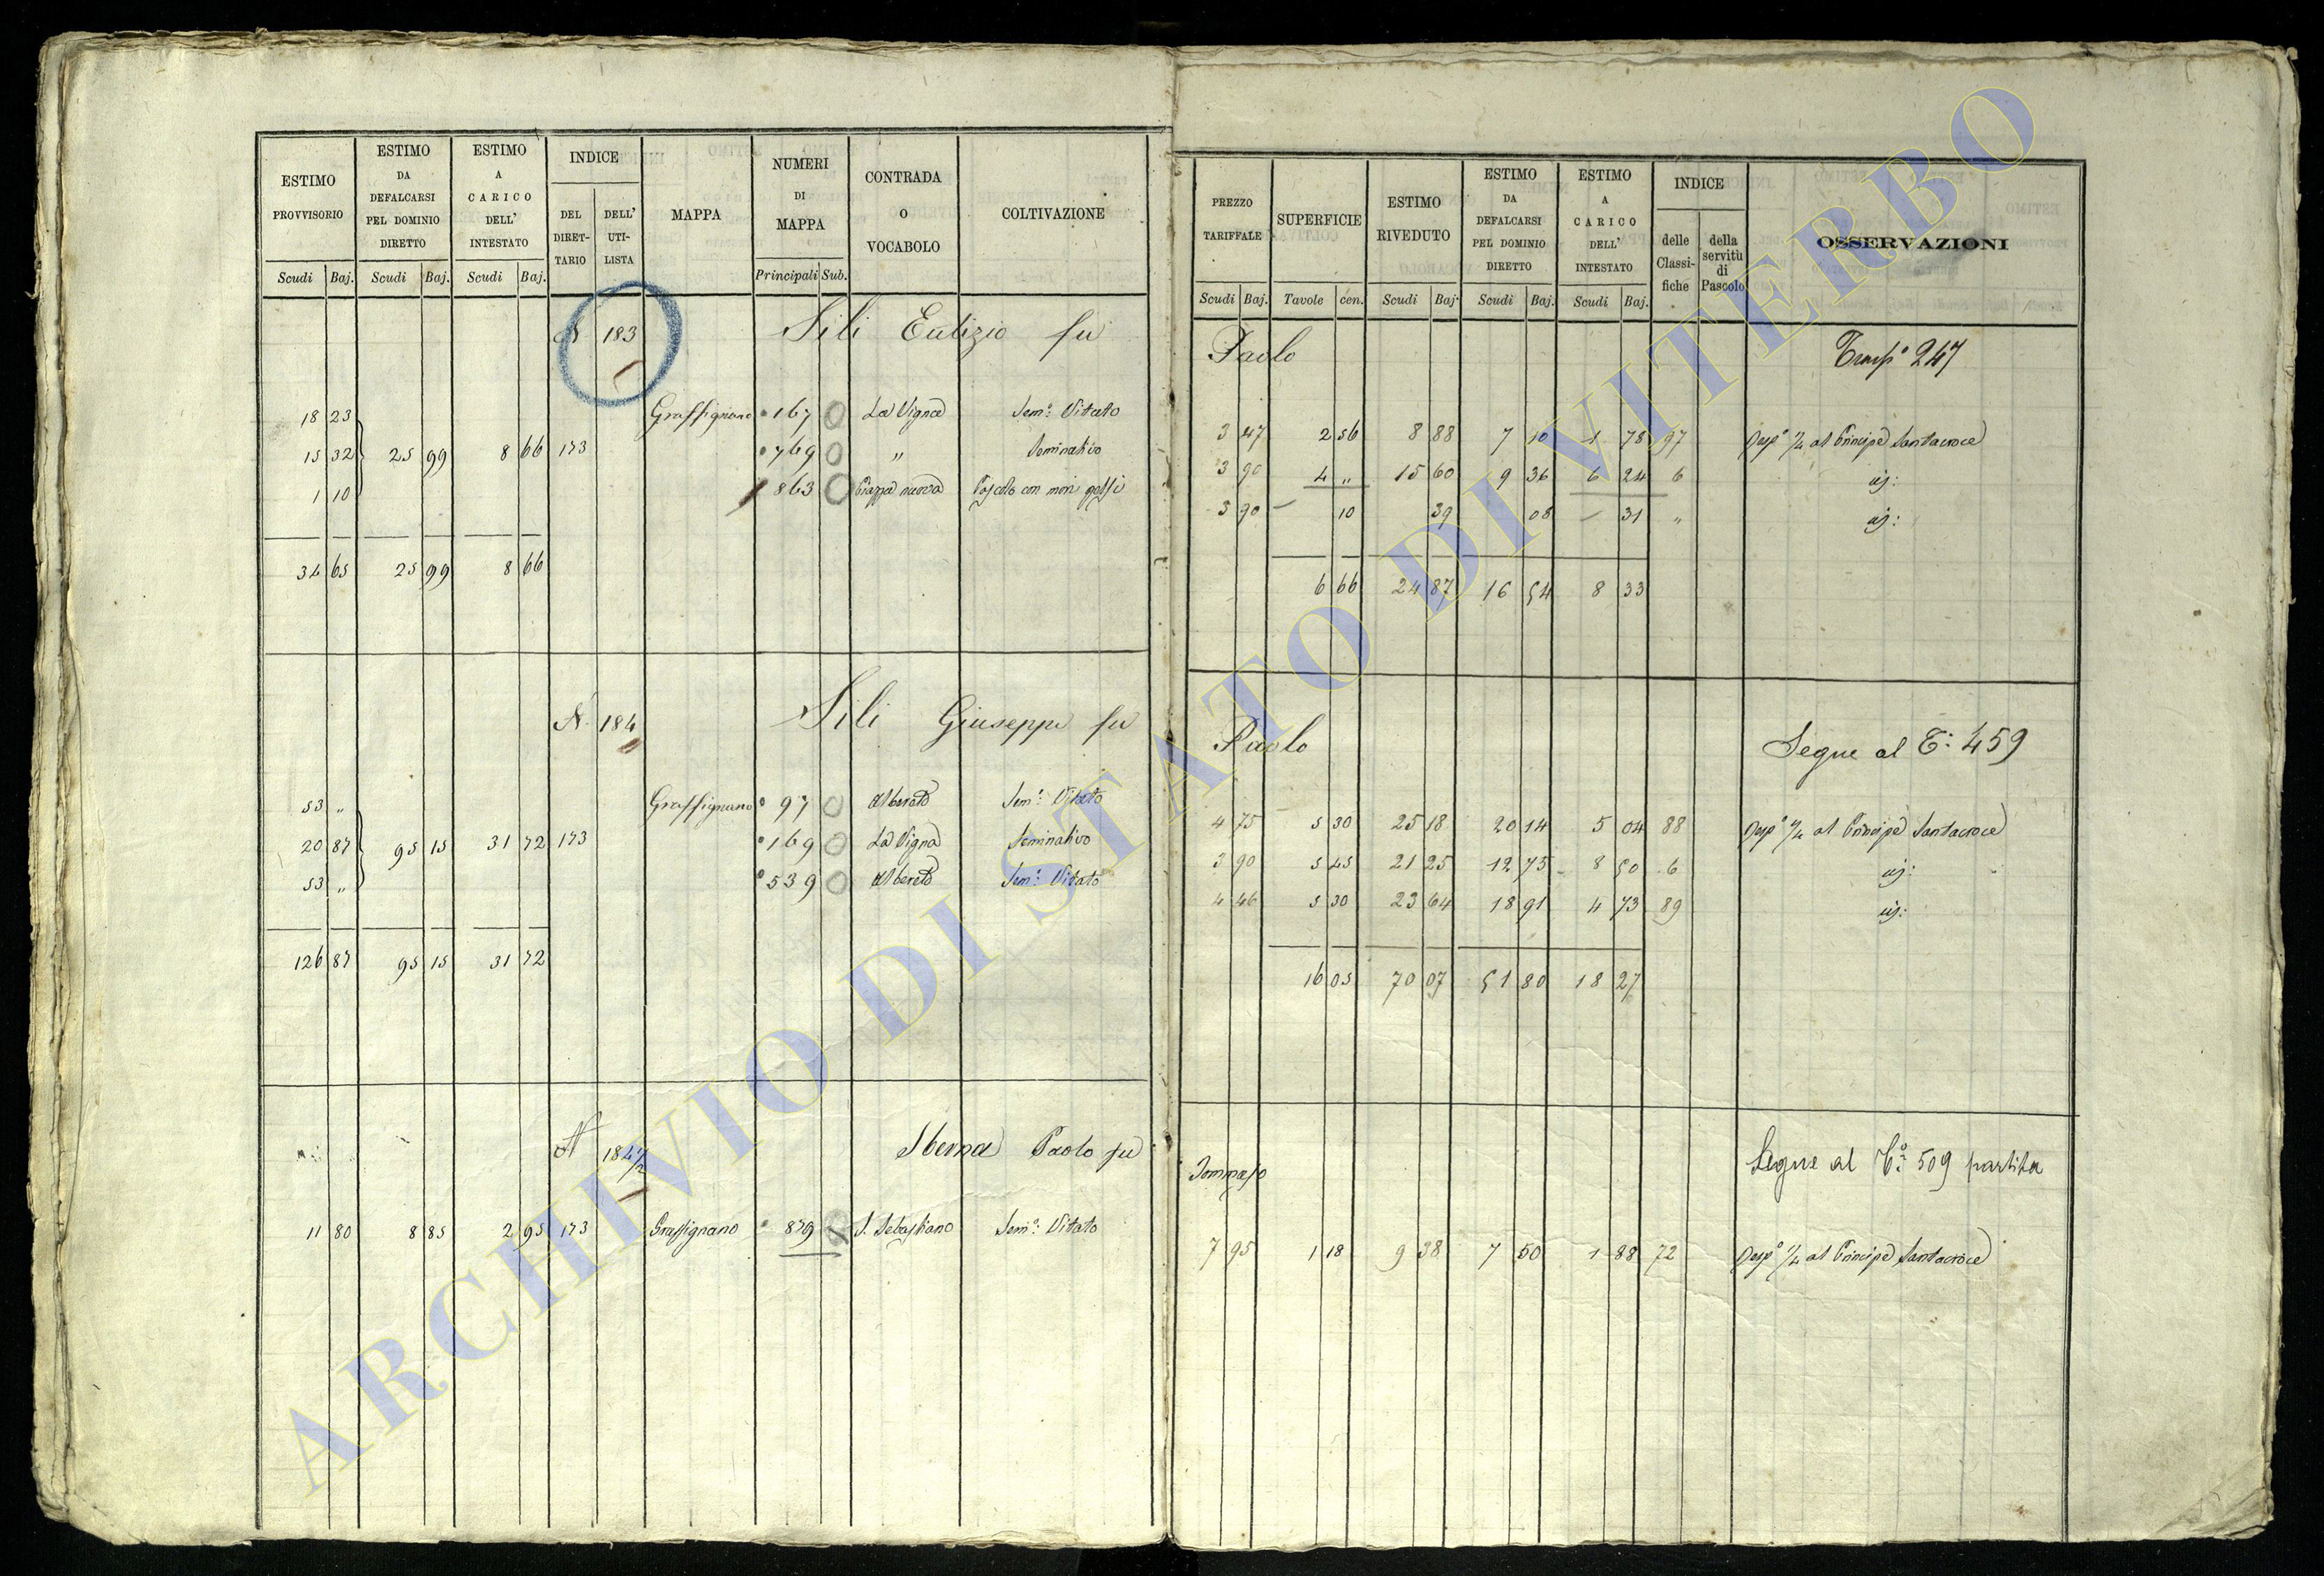 ESTIMO PROVVISORIO | ESTIMO DA DEFALCARSI PEL DOMINIO DIRETTO | ESTIMO A CARICO DELL' INTESTATO | INDICE | MAPPA | NUMERI DI MAPPA | CONTRADA O VOCABOLO | COLTIVAZIONE
DEL DIRETTARIO | DELL' UTILISTA
Scudi | Baj. | Scudi | Baj. | Scudi | Baj. | Principali | Sub.
N 183 Sili Eutizio fu
18 23 Graffignano 167 0 La Vigna Sem.o Vitato
15 32 25 99 8 66 173 769 0 " Seminativo
1 10 863 0 Piazza nuova Pascolo con mori gelsi
34 65 25 99 8 66
N. 184 Sili Giuseppe fu
53 " Graffignano 97 0 Albereto Sem.o Vitato
20 87 95 15 31 72 173 169 0 La Vigna Seminativo
53 " 539 0 Albereto Sem.o Vitato
126 87 95 15 31 72
N 184 1/2 Sberna Paolo fu
11 80 8 85 2 95 173 Graffignano 879 S. Sebastiano Sem.o Vitato
PREZZO TARIFFALE | SUPERFICIE | ESTIMO RIVEDUTO | ESTIMO DA DEFALCARSI PEL DOMINIO DIRETTO | ESTIMO A CARICO DELL' INTESTATO | INDICE | OSSERVAZIONI
delle Classifiche | della servitù di Pascolo
Scudi | Baj. | Tavole | cen. | Scudi | Baj. | Scudi | Baj. | Scudi | Baj.
Paolo Trasp.o 247
3 47 2 56 8 88 7 10 1 78 97 Risp.e 1/4 al Principe Santacroce
3 90 4 " 15 60 9 36 6 24 6 id:
3 90 10 39 08 31 " id:
6 66 24 87 16 54 8 33
Paolo Segue al T. 459
4 75 5 30 25 18 20 14 5 04 88 Risp.e 1/4 al Principe Santacroce
3 90 5 45 21 25 12 75 8 50 6 id:
4 46 5 30 23 64 18 91 4 73 89 id:
16 05 70 07 51 80 18 27
Tommaso Segue al T.o 509 partita
7 95 1 18 9 38 7 50 1 88 72 Risp.e 1/4 al Principe Santacroce
ARCHIVIO DI STATO DI VITERBO